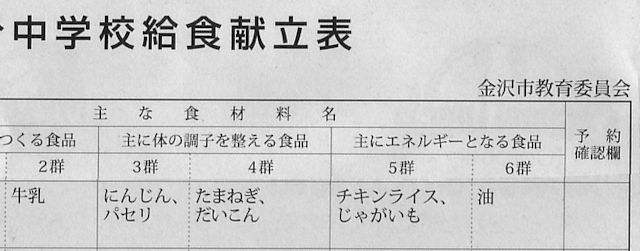 中学校給食献立表
金沢市教育委員会
主な食材料名
つくる食品 主に体の調子を整える食品 主にエネルギーとなる食品 予約
確認欄
2群 3群 4群 5群 6群
牛乳 にんじん、 たまねぎ、 チキンライス、 油
パセリ だいこん じゃがいも